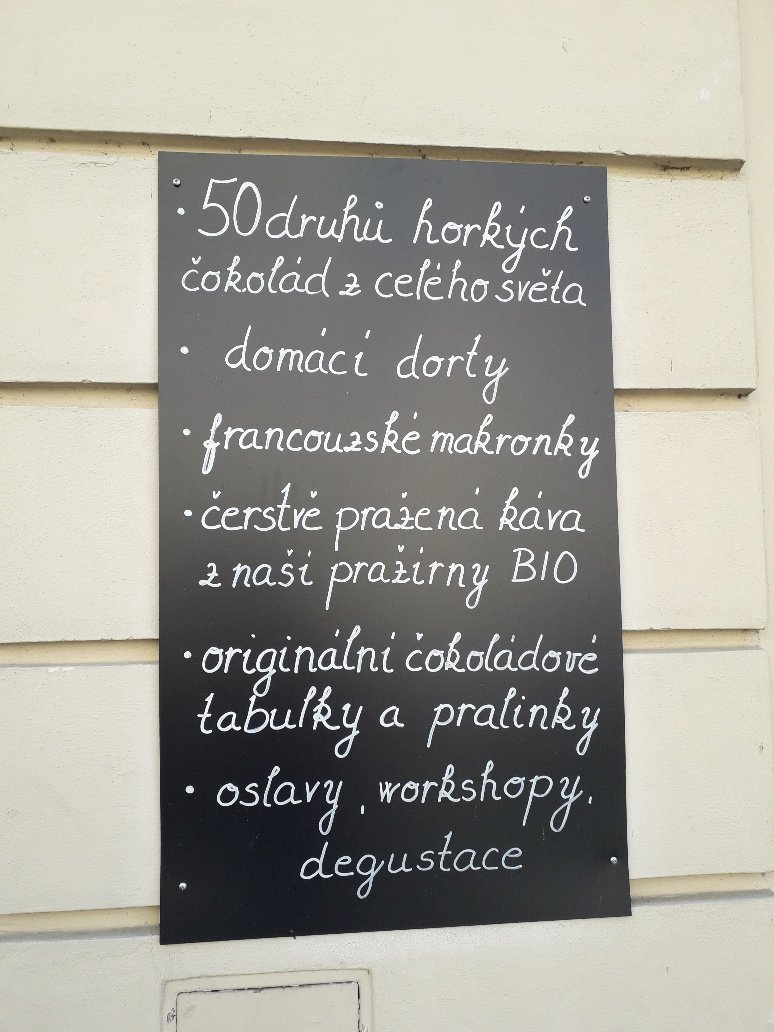 • 50 druhů horkých
čokolád z celého světa
• domácí dorty
• francouzské makronky
• čerstvě pražená káva
z naší pražírny BIO
• originální čokoládové
tabulky a pralinky
• oslavy, workshopy,
degustace